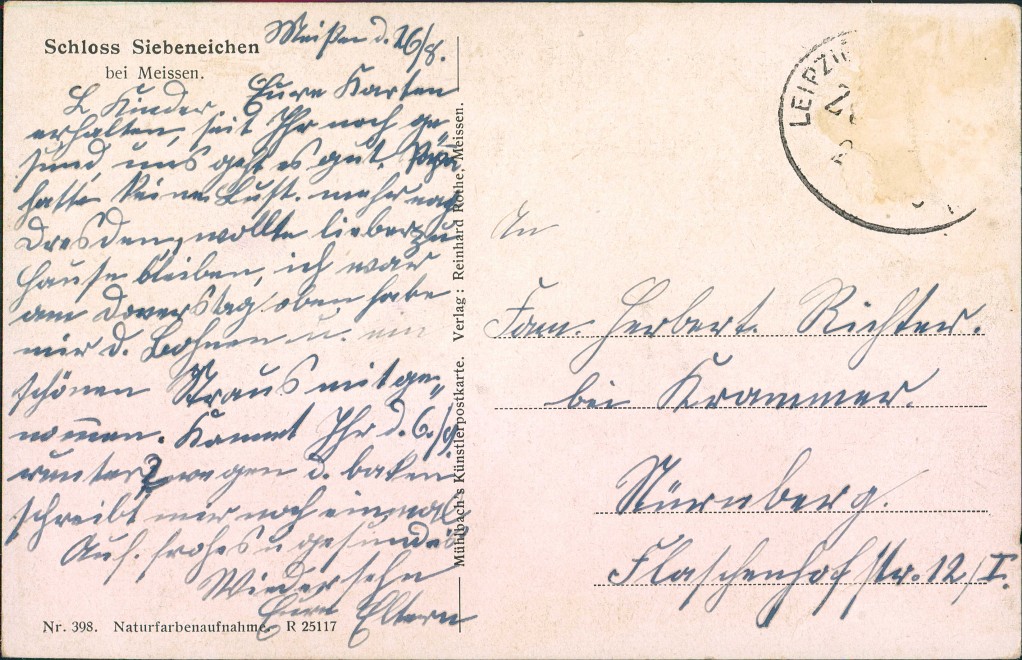 Schloss Siebeneichen
bei Meissen.
Meißen d. 26/8.
L. Kinder. Eure Karten
erhalten, seit Ihr noch ge
sund, uns geht es gut. Papa
hatte keine Lust. mehr nach
Dresden, wollte lieber zu
Hause bleiben, ich war
am Donerstag oben habe
mir d. Bohnen u. ein
schönen Straus mit ge-
nommen. Kommt Ihr d. 6./9.
runter? wegen d. baken
schreibt mir noch einmal
Auf. frohes u gesundes
Wiedersehn
Eure Eltern
Nr. 398. Naturfarbenaufnahme. R 25117
Mühlbach's Künstlerpostkarte. Verlag: Reinhard Rothe, Meissen.
LEIPZIG
An
Fam. Herbert. Richter.
bei Krammer.
Nürnberg.
Flaschenhofstr. 12/I.